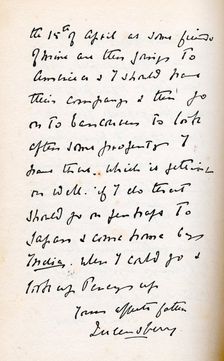 the 15th of April as some friends
of mine are then going to
America & I should have
their company & then go
on to Vancouver to look
after some property I
have there. which is getting
on well. if I do that
should go on perhaps to
Japan & come home by
India. when I could go &
look up Percy up
Yours affectte father
Queensberry